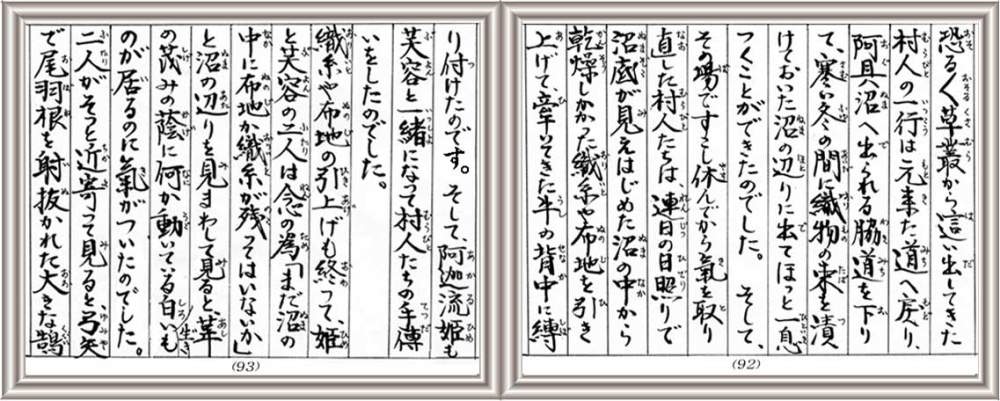 恐る〱草叢から這い出してきた
村人の一行は元来た道へ戻り、
阿且沼へ出られる脇道を下り
て、寒い冬の間に織物の束を漬
けておいた沼の辺りに出てほっと一息
つくことができたのでした。 そして、
その場ですこし休んでから氣を取り
直した村人たちは、連日の日照りで
沼底が見えはじめた沼の中から
乾燥しかかった織糸や布地を引き
上げて、牽いてきた牛の背中に縛
(92)
り付けたのです。そして、阿迦流姫も
芙容と一緒になって村人たちの手傳
いをしたのでした。
織糸や布地の引上げも終って、姫
と芙容の二人は念の為「まだ沼の
中に布地か織糸が残ってはいないか」
と沼の辺りを見まわして見ると、葦
の茂みの蔭に何か動いている白い生きも
のが居るのに氣がついたのでした。
二人がそっと近寄って見ると、弓矢
で尾羽根を射抜かれた大きな鵠
(93)